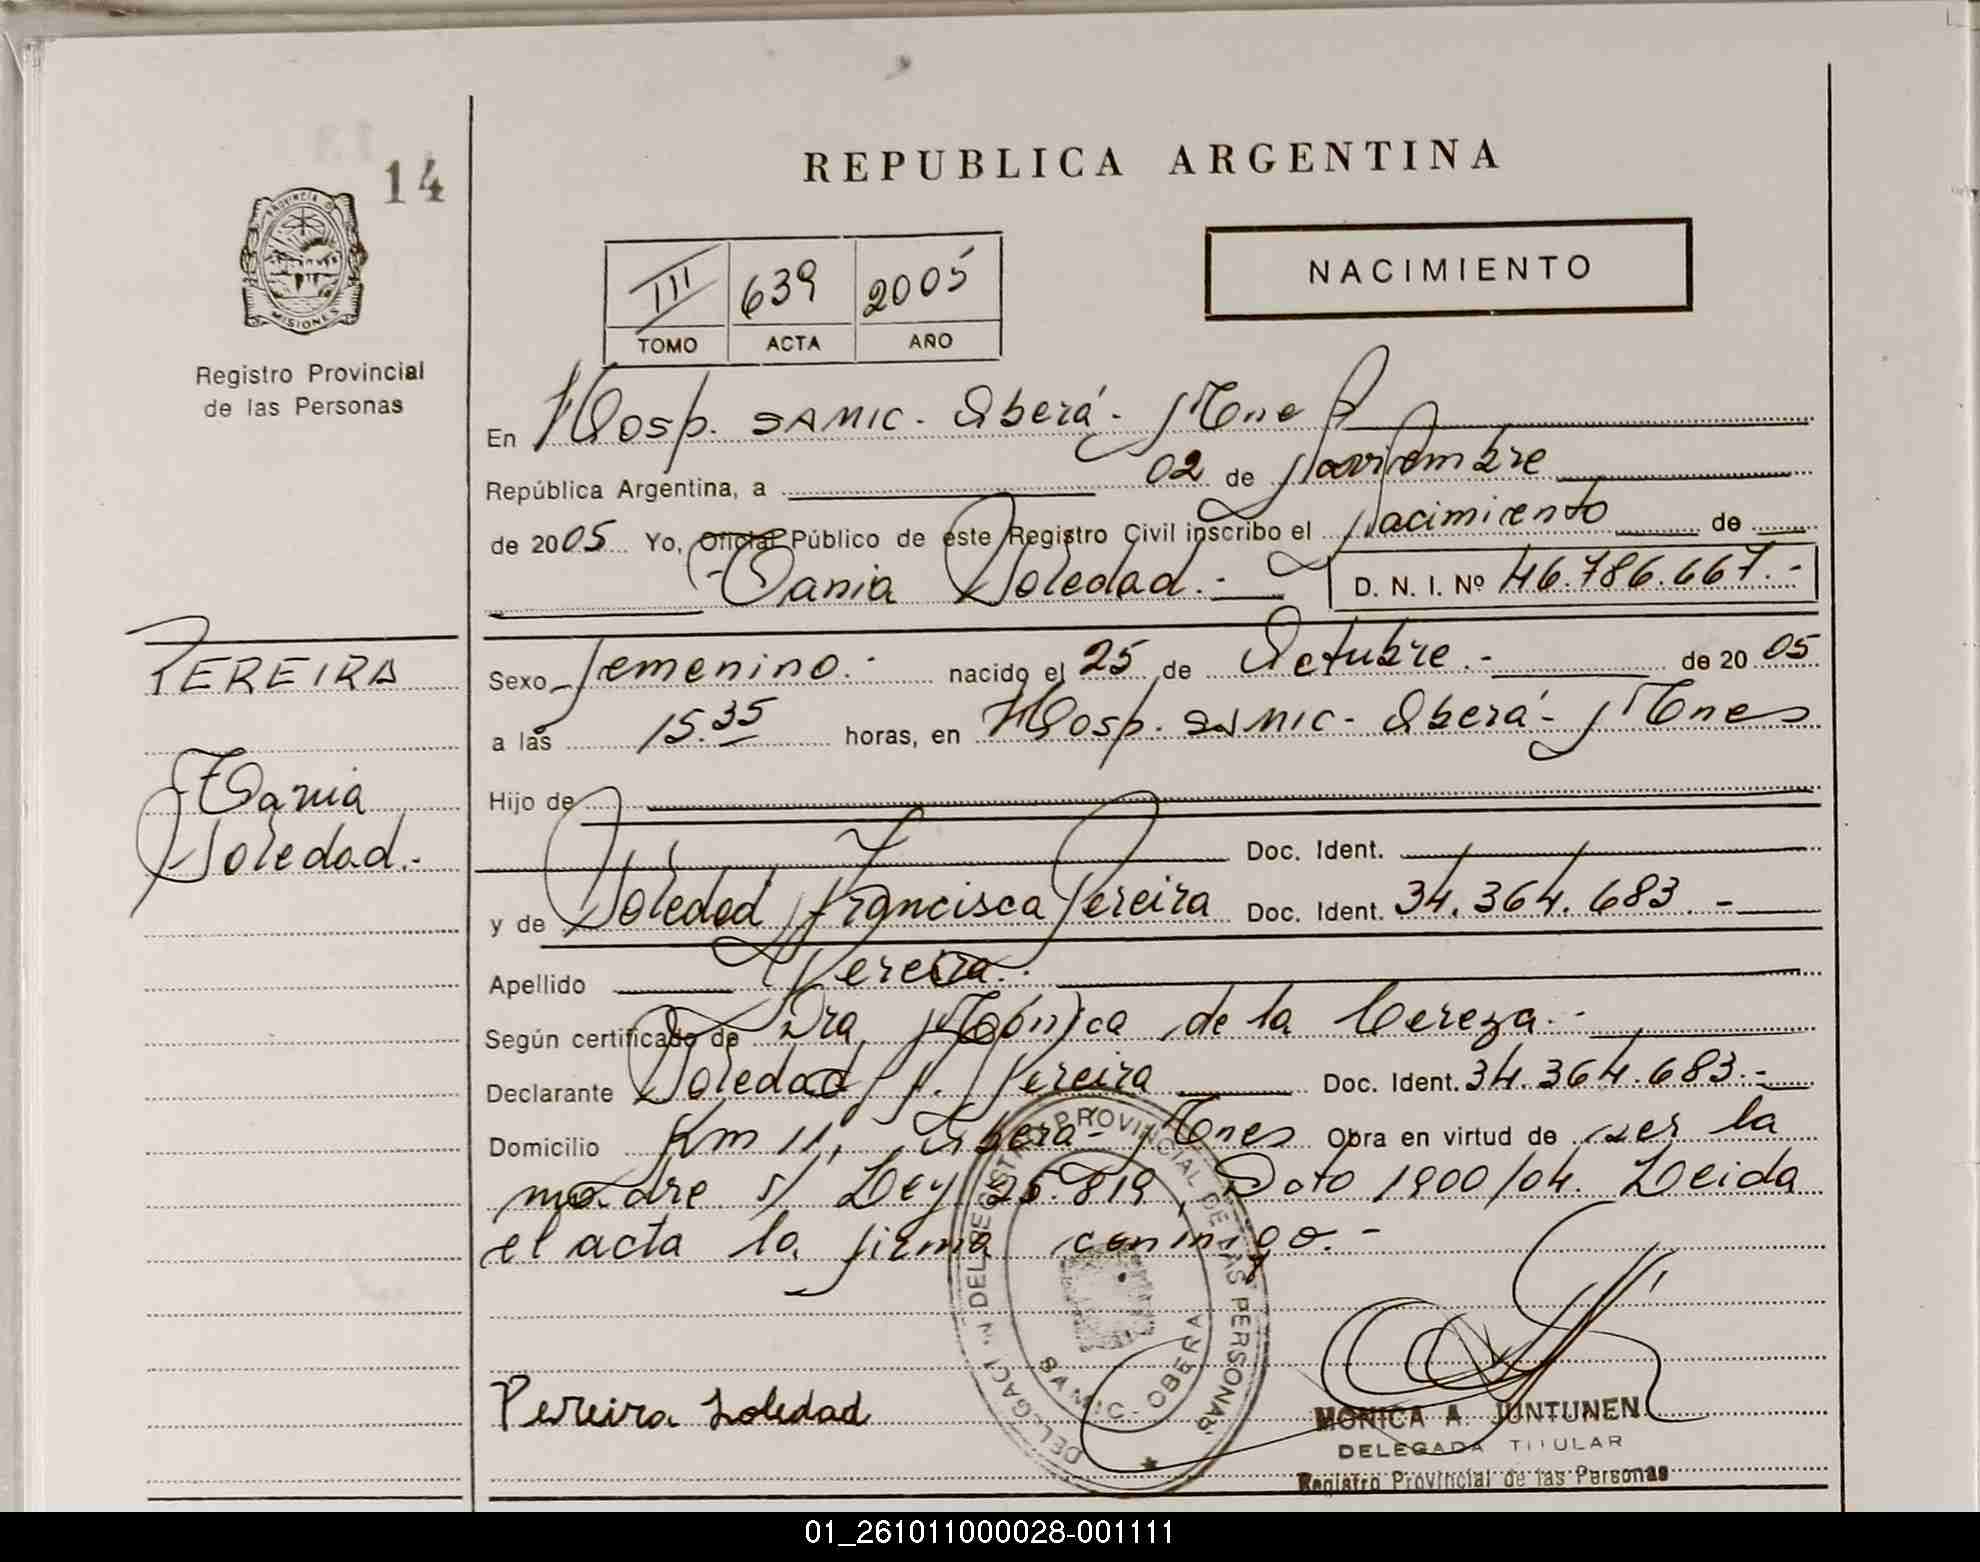 14
PROVINCIA D
MISIONES
Registro Provincial
de las Personas
REPUBLICA ARGENTINA
III 639 2005
TOMO ACTA AÑO
NACIMIENTO
En Hosp. SAMIC. Oberá - Mnes
República Argentina, a 02 de Noviembre
de 2005 Yo, Oficial Público de este Registro Civil inscribo el Nacimiento de
Tania Soledad.- D. N. I. Nº 46.786.667.-
PEREIRA
Tania
Soledad.-
Sexo Femenino.- nacido el 25 de Octubre.- de 2005
a las 15.35 horas, en Hosp. SAMIC - Oberá - Mnes
Hijo de
Doc. Ident.
y de Soledad Francisca Pereira Doc. Ident. 34.364.683.-
Apellido Pereira.-
Según certificado de Dra. Mónica de la Cereza.-
Declarante Soledad F. Pereira Doc. Ident. 34.364.683.-
Domicilio Km 11, Oberá - Mnes Obra en virtud de ser la
madre s/ Ley 25.819, Dcto 1900/04. Leida
el acta la firma conmigo.-
DELEGACI N DEL REGISTRO PROVINCIAL DE LAS PERSONAS
SAMIC - OBERA
Pereira Soledad
MONICA A. JUNTUNEN
DELEGADA TITULAR
Registro Provincial de las Personas
01_261011000028-001111